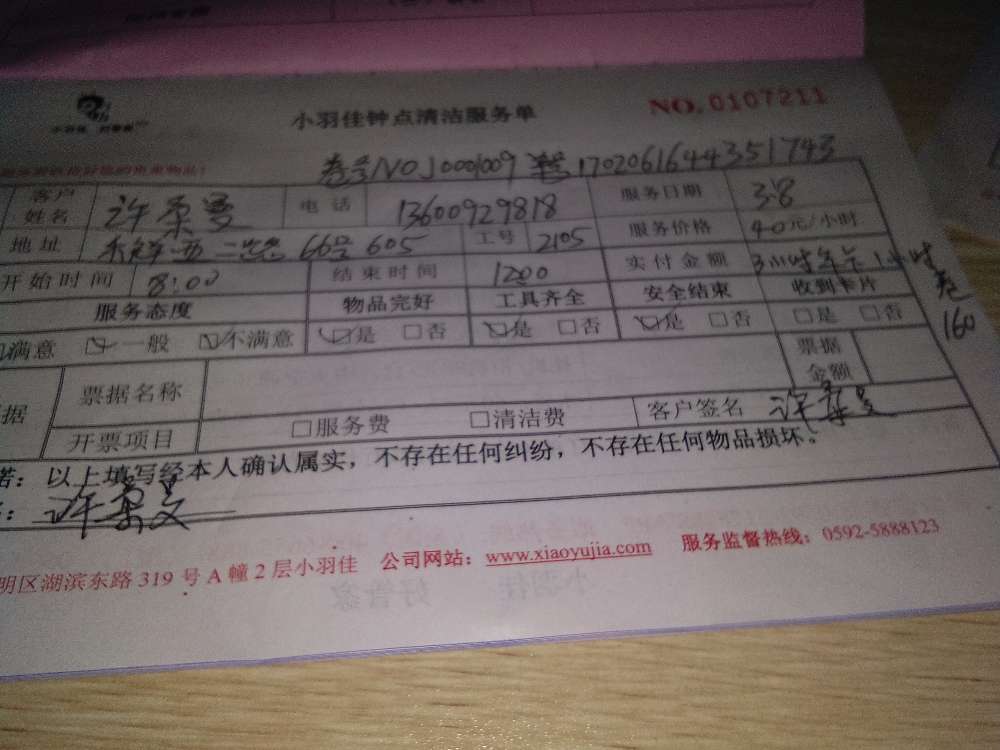 小羽佳 好管家
小羽佳钟点清洁服务单 NO. 0107211
卷号NO J0001009 单号 1702061644351743
客户姓名 许柔曼 电话 13600929818 服务日期 3.8
地址 禾祥西二路 66号 605 工号 2105 服务价格 40元/小时
开始时间 8:00 结束时间 1200 实付金额 3小时年卡 1小时卷 160
服务态度 物品完好 工具齐全 安全结束 收到卡片
满意 一般 不满意 是 否 是 否 是 否 是 否
据 票据名称 票据金额
开票项目 服务费 清洁费 客户签名 许柔曼
诺：以上填写经本人确认属实，不存在任何纠纷，不存在任何物品损坏。
许柔曼
明区湖滨东路 319 号 A 幢 2 层小羽佳 公司网站：www.xiaoyujia.com 服务监督热线：0592-5888123